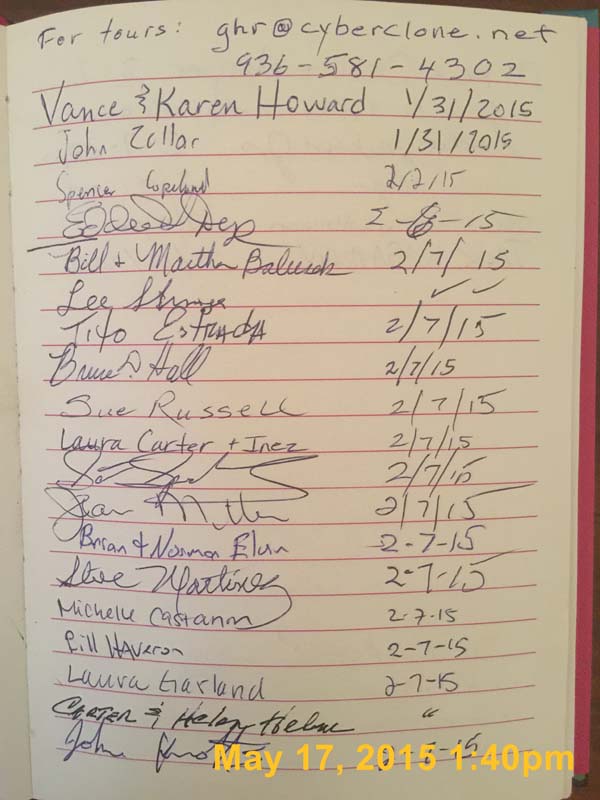 For tours: ghr@cyberclone.net
936-581-4302
Vance & Karen Howard 1/31/2015
John Zollar 1/31/2015
Spencer Copeland 2/7/15
2-6-15
Bill & Martha 2/7/15
Lee ✓ ✓
Tito Estrada 2/7/15
Bruce D. Hall 2/7/15
Sue Russell 2/7/15
Laura Carter + Inez 2/7/15
2/7/15
Jean 2/7/15
Brian & Norman 2-7-15
Steve Martinez 2-7-15
Michelle 2-7-15
Bill Haveron 2-7-15
Laura Garland 2-7-15
Carter & "
John -15
May 17, 2015 1:40pm